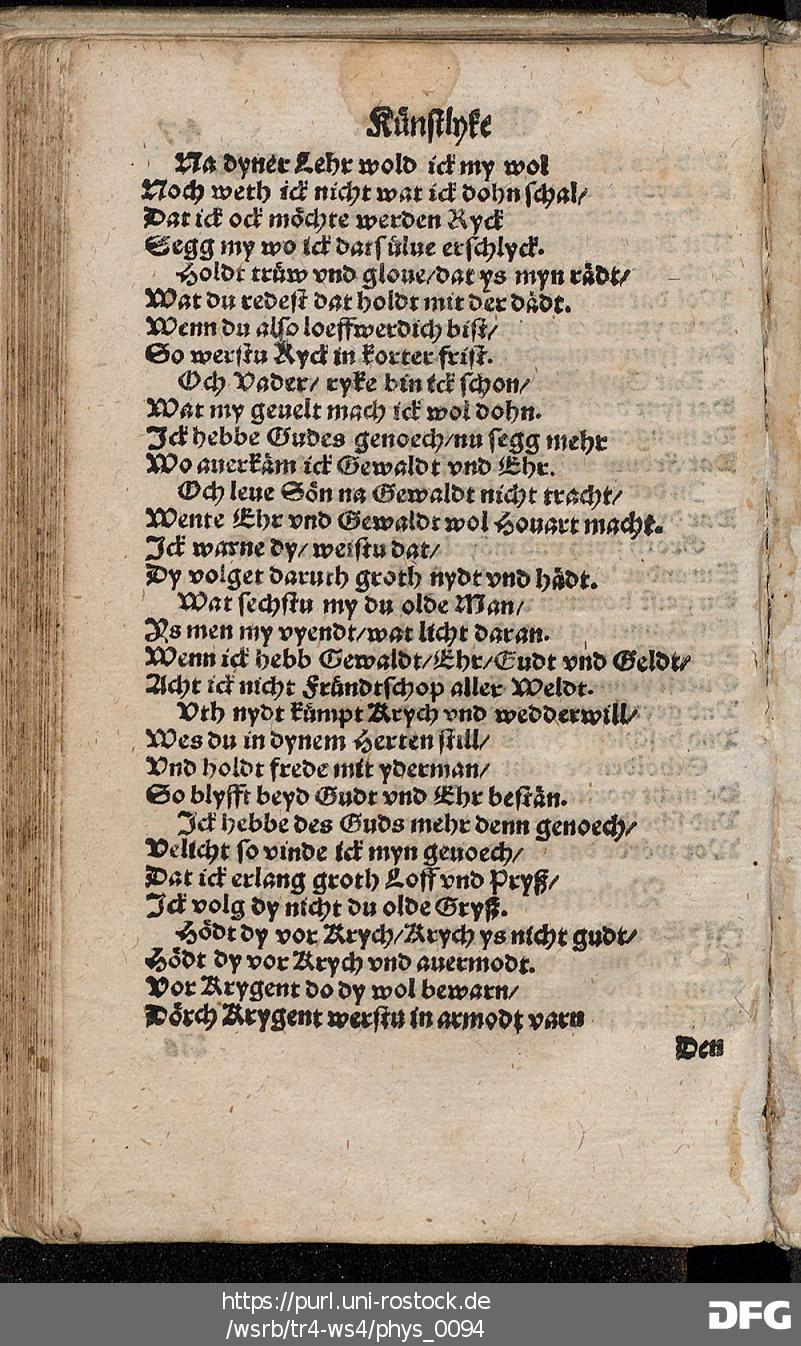 Künstlyke
Na dyner Lehr wold ick my wol
Noch weth ick nicht wat ick dohn schal/
Dat ick ock möchte werden Ryck
Segg my wo ick datsülue erschlyck.
Holdt trüw vnd gloue/dat ys myn rädt/
Wat du redest dat holdt mit der dädt.
Wenn du also loeffwerdich bist/
So werstu Ryck in korter frist.
Och Vader/ ryke bin ick schon/
Wat my geuelt mach ick wol dohn.
Ick hebbe Gudes genoech/nu segg mehr
Wo auerkäm ick Gewaldt vnd Ehr.
Och leue Sön na Gewaldt nicht tracht/
Wente Ehr vnd Gewaldt wol Houart macht.
Ick warne dy/ weistu dat/
Dy volget daruth groth nydt vnd hädt.
Wat sechstu my du olde Man/
Ys men my vyendt/wat licht daran.
Wenn ick hebb Gewaldt/Ehr/Gudt vnd Geldt/
Acht ick nicht Fründtschop aller Weldt.
Vth nydt kümpt Krych vnd wedderwill/
Wes du in dynem Herten still/
Vnd holdt frede mit yderman/
So blyfft beyd Gudt vnd Ehr bestän.
Ick hebbe des Guds mehr denn genoech/
Velicht so vinde ick myn geuoech/
Dat ick erlang groth Loff vnd Pryß/
Ick volg dy nicht du olde Gryß.
Hödt dy vor Krych/Krych ys nicht gudt/
Hödt dy vor Krych vnd auermodt.
Vor Krygent do dy wol bewarn/
Dörch Krygent werstu in armodt varn
Den
https://purl.uni-rostock.de
/wsrb/tr4-ws4/phys_0094
DFG